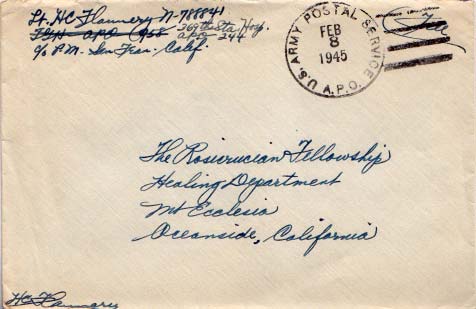 Lt. HC Flannery N-788841
FSH - APO 958 369th Sta Hosp.
APO 244
c/o P.M. San Fran. Calif.
U.S. ARMY POSTAL SERVICE
FEB
8
1945
A.P.O.
Free
The Rosicrucian Fellowship
Healing Department
Mt Ecclesia
Oceanside, California
HC Flannery